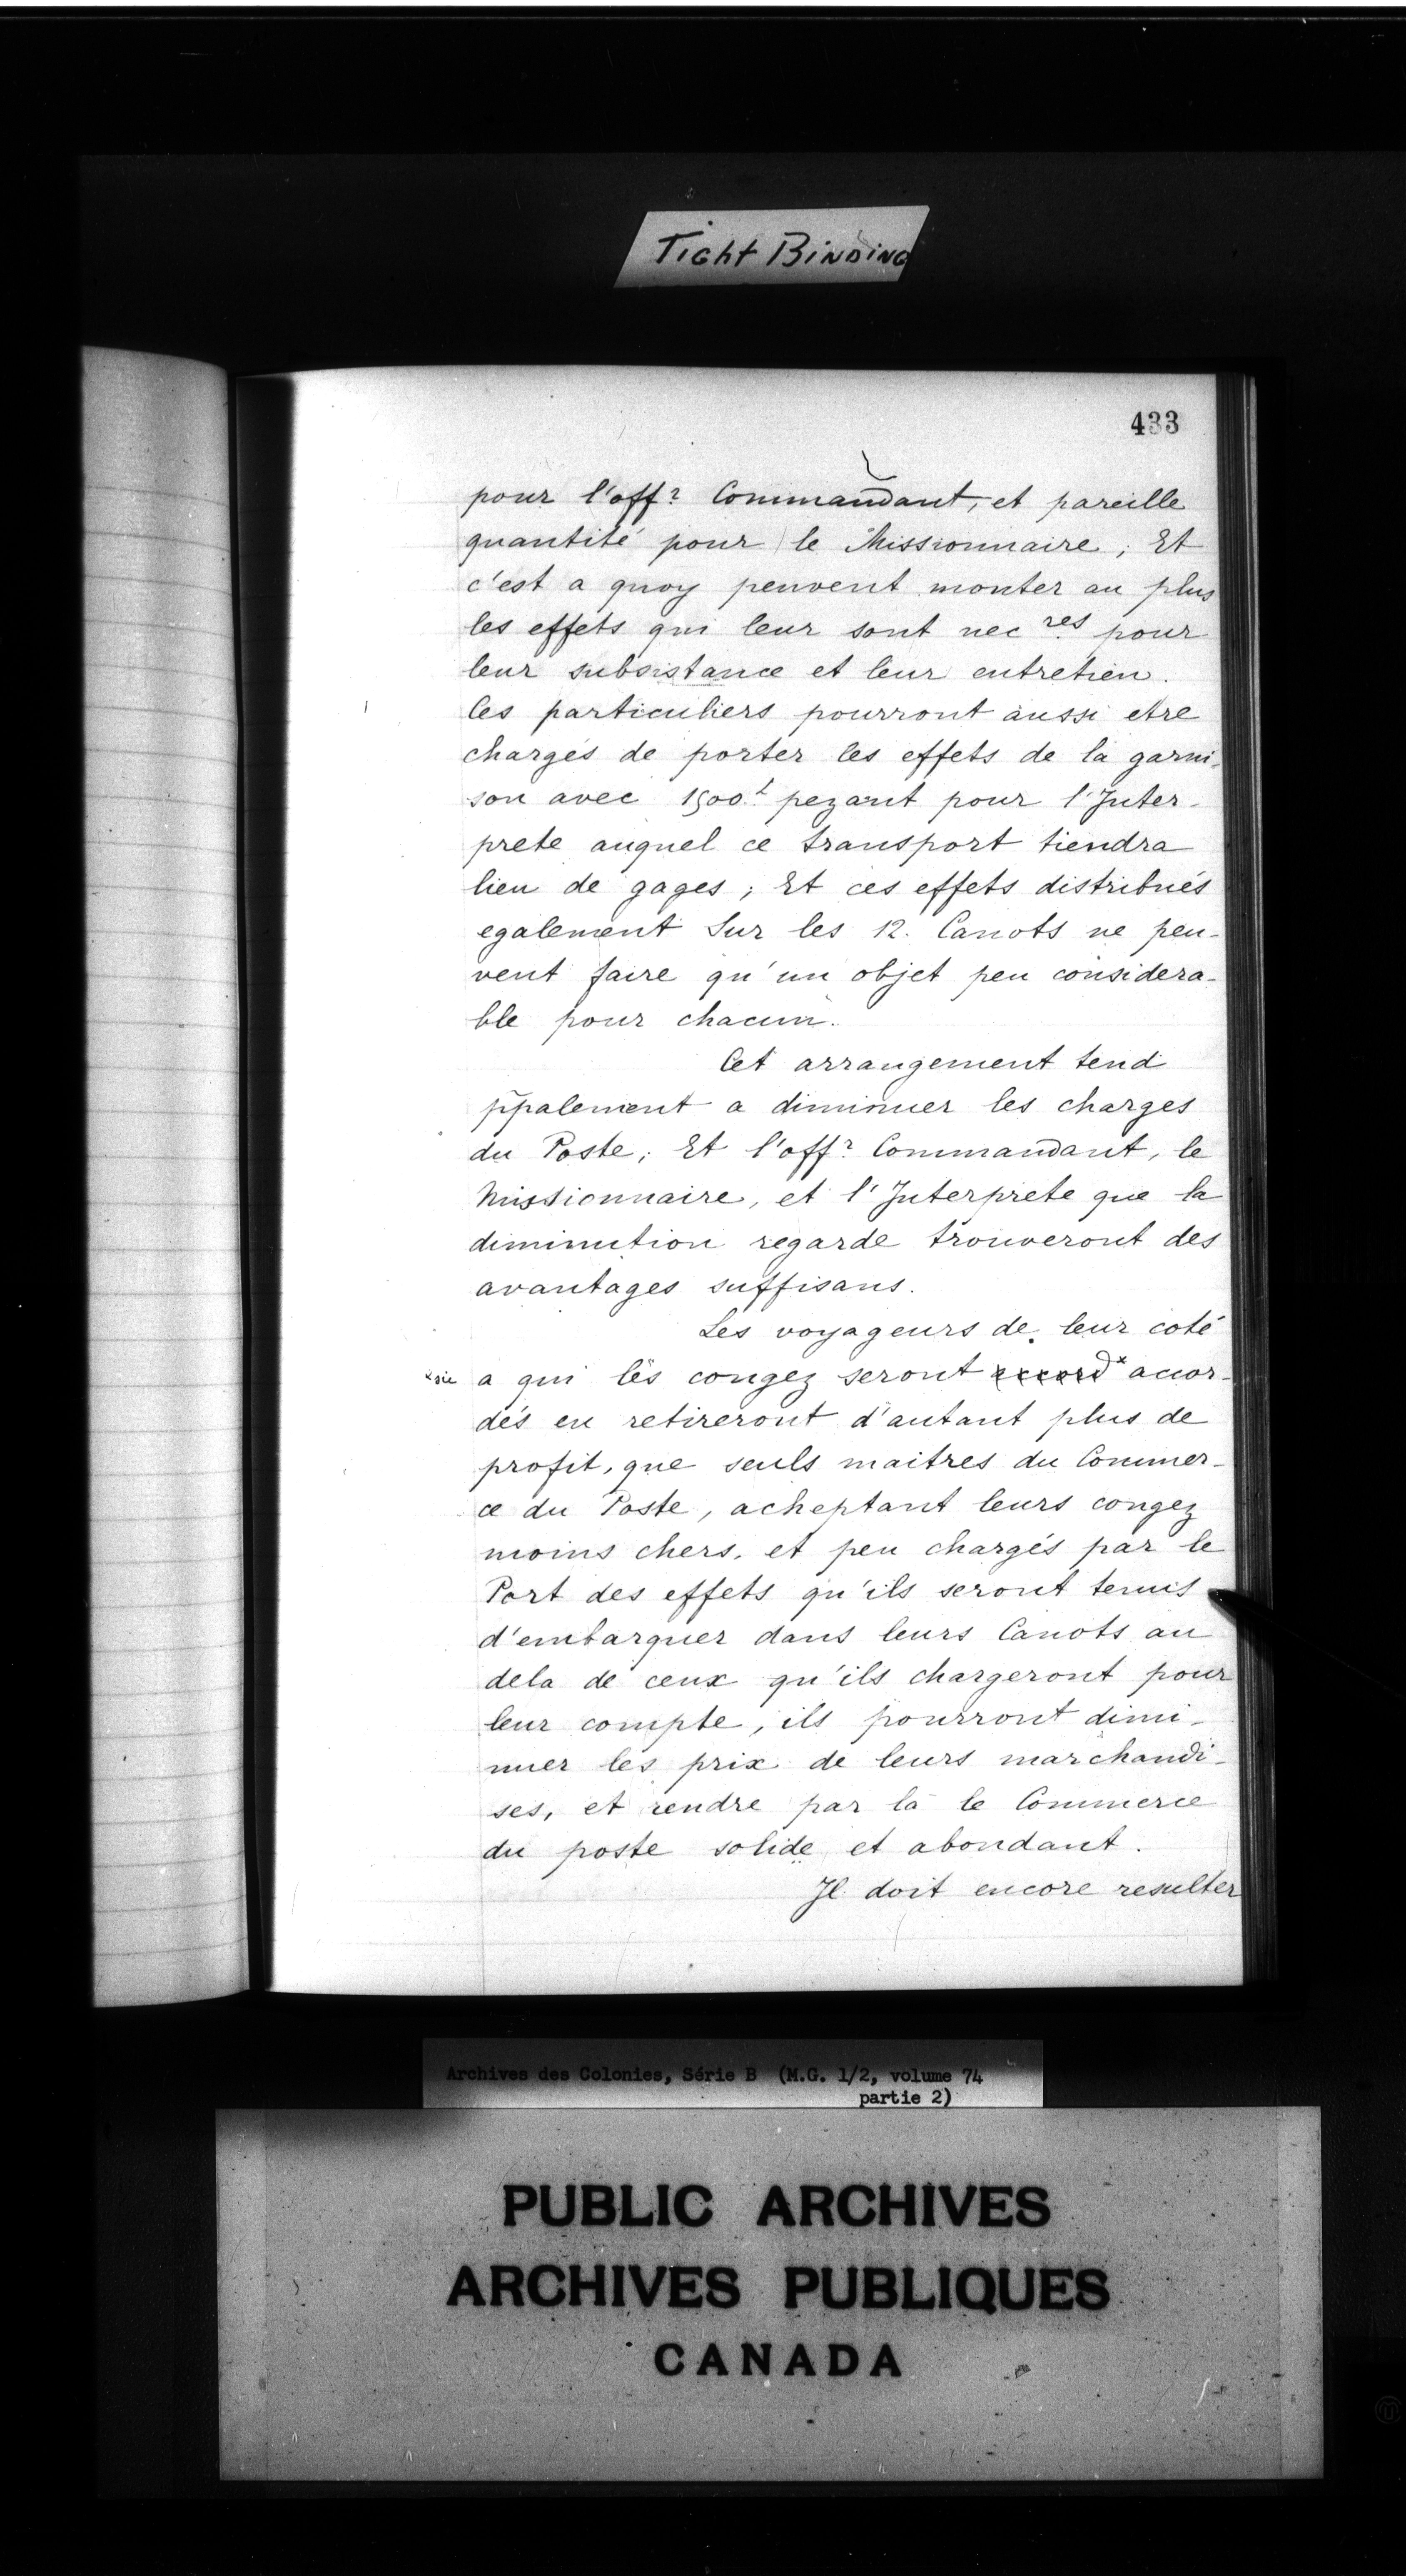 Tight Binding
433
pour l'offr Commandant, et pareille
quantité pour le Missionnaire; Et
c'est a quoy peuvent monter au plus
les effets qui leur sont necres pour
leur subsistance et leur entretien.
Ces particuliers pourront aussi etre
chargés de porter les effets de la garni-
son avec 1500l pezant pour l'Inter-
prete auquel ce transport tiendra
lieu de gages; Et ces effets distribués
egalement sur les 12. Canots ne peu-
vent faire qu'un objet peu considera-
ble pour chacun.
Cet arrangement tend
p̃palement a diminuer les charges
du Poste; Et l'offr Commandant, le
Missionnaire, et l'Interprete que la
diminution regarde trouveront des
avantages suffisans.
Les voyageurs de leur coté
x sic a qui les congez seront accord x accor-
dés en retireront d'autant plus de
profit, que seuls maitres du Commer-
ce du Poste, acheptant leurs congez
moins chers, et peu chargés par le
Port des effets qu'ils seront tenus
d'embarquer dans leurs Canots au
dela de ceux qu'ils chargeront pour
leur compte, ils pourront dimi-
nuer les prix de leurs marchandi-
ses, et rendre par là le Commerce
du poste solide et abondant.
Il doit encore resulter
Archives des Colonies, Série B (M.G. 1/2, volume 74
partie 2)
PUBLIC ARCHIVES
ARCHIVES PUBLIQUES
CANADA